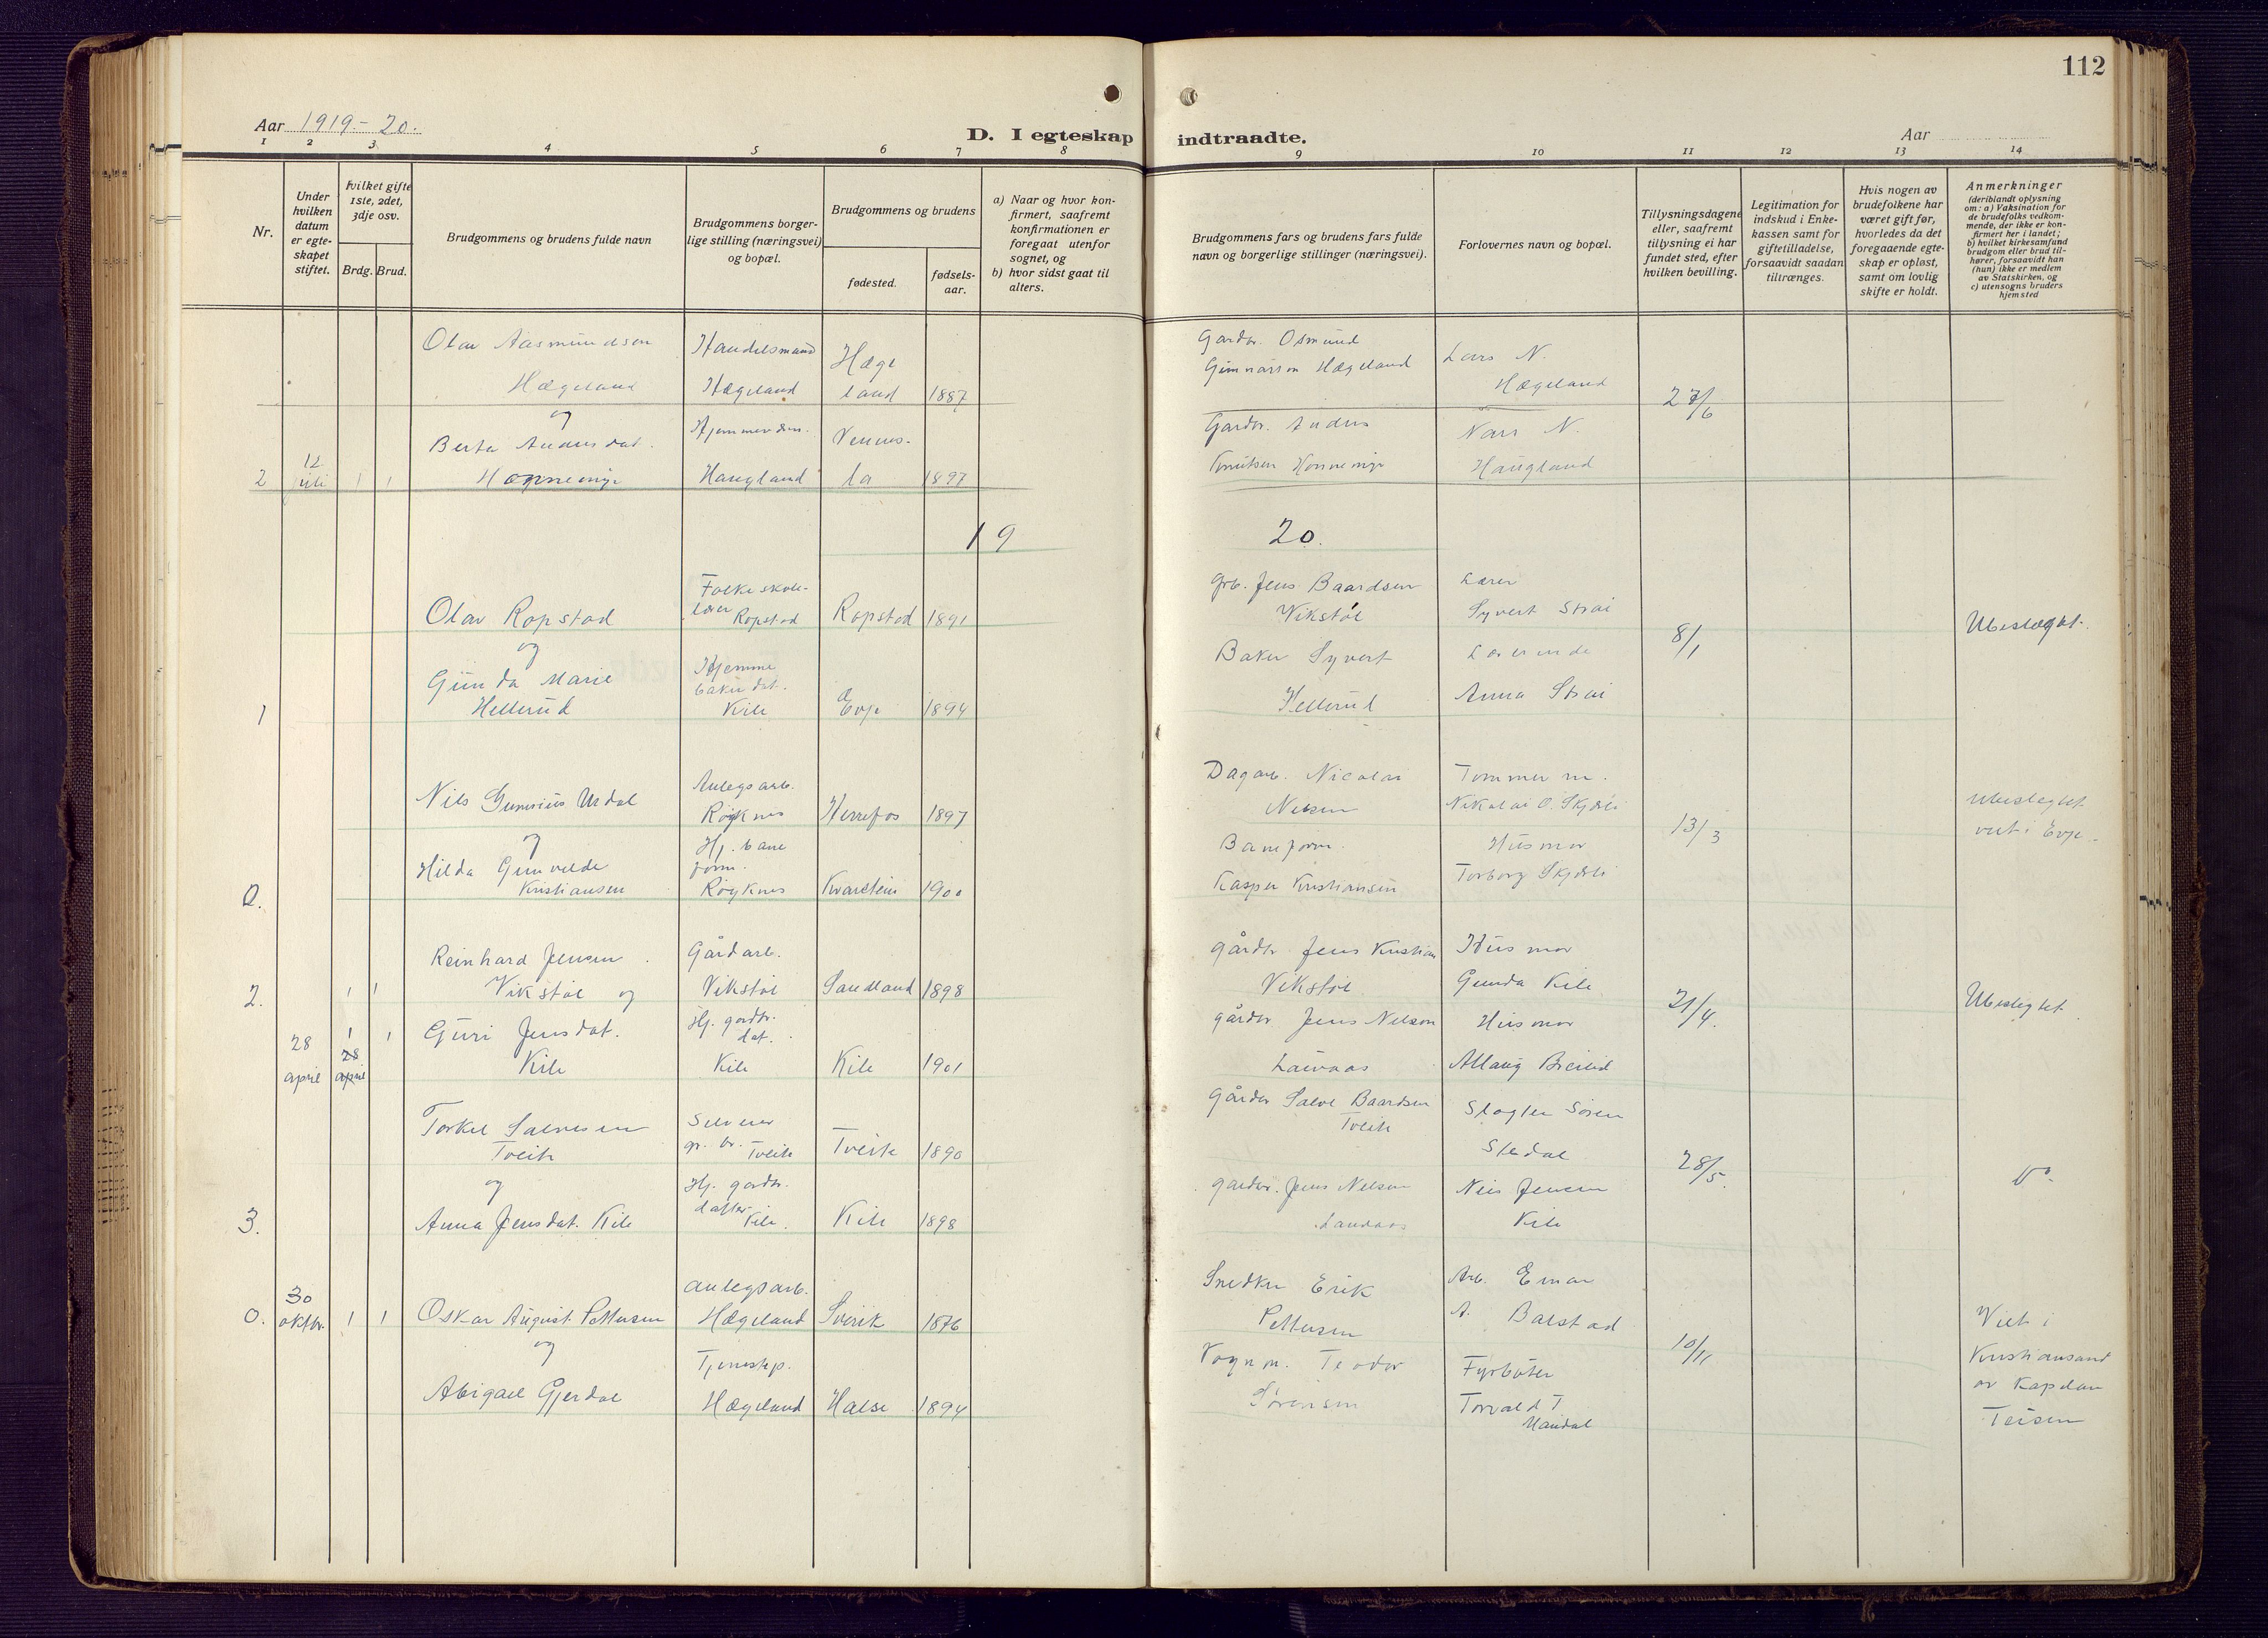 112
Aar 1919.-20.
D. I egteskap indtraadte.
Aar
1 2 3 4 5 6 7 8 9 10 11 12 13 14
Nr.
Under
hvilken
datum
er egte-
skapet
stiftet.
Hvilket gifte
1ste, 2det,
3dje osv.
Brdg. Brud.
Brudgommens og brudens fulde navn
Brudgommens borger-
lige stilling (næringsvei)
og bopæl.
Brudgommens og brudens
fødested.
fødsels-
aar.
a) Naar og hvor kon-
firmert, saafremt
konfirmationen er
foregaat utenfor
sognet, og
b) hvor sidst gaat til
alters.
Brudgommens fars og brudens fars fulde
navn og borgerlige stillinger (næringsvei).
Forlovernes navn og bopæl.
Tillysningsdagene
eller, saafremt
tillysning ei har
fundet sted, efter
hvilken bevilling.
Legitimation for
indskud i Enke-
kassen samt for
giftetilladelse,
forsaavidt saadan
tiltrænges.
Hvis nogen av
brudefolkene har
været gift før,
hvorledes da det
foregaaende egte-
skap er opløst,
samt om lovlig
skifte er holdt.
Anmerkninger
(deriblandt oplysning
om: a) Vaksination for
de brudefolks vedkom-
mende, der ikke er kon-
firmert her i landet;
b) hvilket kirkesamfund
brudgom eller brud til-
hører, forsaavidt han
(hun) ikke er medlem
av Statskirken, og
c) utensogns bruders
hjemsted
2
12
juli
1 1
Olav Aasmundsen
Hægeland
og
Berta Andersdat.
Handelsmand
Hægeland
Haugland
Hæge
land
1887
Vennes-
la
1897
Gardbr. Osmund
Gunnarson Hægeland
Gardbr. Anders
Knutsen
Lars N.
Hægeland
Nars N.
Haugland
27/6
19 20.
1
Olav Ropstad
og
Gunda Marie
Hellerud
Folkeskole-
lærer
Ropstad
Hjemme
bakerdat.
Kile
Ropstad
1891
Evje
1894
Grb. Jens Baardsen
Vikstøl
Baker Syvert
Hellerud
Lærer
Syvert Strai
Lærerinde
Anna Strai
8/1
Ubeslægtet.
0.
Nils Gunnius Urdal
og
Hilda Gunvalde
Kristiansen
Anlegsarb.
Røyknes
Hj. bane
form.
Røyknes
Herrefos
1897
Kvarstein
1900
Dagarb. Nicolai
Nelsen
Baneform.
Kasper Kristiansen
Tømmerm.
Nikolai O. Skjærli
Husmor
Torborg Skjærli
13/3
Ubeslegtet
viet i Evje.
2.
28
april
1 1
1 1
28
april
Reinhard Jensen
Vikstøl og
Guri Jensdat.
Kile
Gårdarb.
Vikstøl
Hj. gardbr.
dat.
Kile
Sandland
1898
Kile
1901
gårdbr Jens Kristian
Vikstøl
gårdbr Jens Nelson
Lauvaas
Husmor
Gunda Kile
Husmor
Allaug Breilid
21/4.
Ubeslegtet
3.
Torkel Salvesen
Tveite
og
Anna Jensdat. Kile
Selveier
gr. br. Tveite
Hj. gardbr.
datter
Kile.
Tveite
1890
Kile
1898
Gårdbr Salve Baardsen
Tveite
gardbr. Jens Nelsen
Lauvaas
Slagter Søren
Stedal
Nils Jensen
Kile
28/5.
0.
30
oktbr.
1 1
Oskar August Pettersen
og
Abigael Gjerdal
Anlegsarb.
Hægeland
Tjenestep.
Hægeland
Sverik
1876
Halse
1894
Snedker Erik
Pettersen
Vognm. Teodor
Sørensen
Arb. Einar
A. Balstad
Fyrbøter
Torvald T.
Mandal
10/11
Viet i
Kristiansand
av Kapelan
Teisen